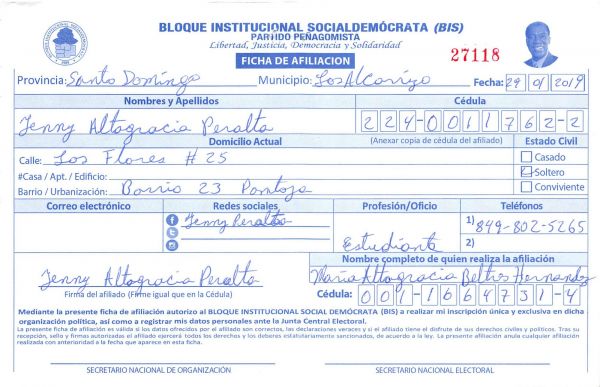 BLOQUE INSTITUCIONAL SOCIALDEMÓCRATA (BIS)
PARTIDO PEÑAGOMISTA
Libertad, Justicia, Democracia y Solidaridad
FICHA DE AFILIACION
27118
Provincia: Santo Domingo Municipio: Los Alcarrizo Fecha: 29 01 2019
Nombres y Apellidos Cédula
Jenny Altagracia Peralta 224-0011762-2
Domicilio Actual (Anexar copia de cédula del afiliado) Estado Civil
Calle: Los Flores # 25 Casado
#Casa / Apt. / Edificio: Soltero
Barrio / Urbanización: Barrio 23 Pantoja Conviviente
Correo electrónico Redes sociales Profesión/Oficio Teléfonos
Jenny Peralta 1) 849-802-5265
Estudiante 2)
Nombre completo de quien realiza la afiliación
Jenny Altagracia Peralta María Altagracia Beltres Hernandez
Firma del afiliado (Firme igual que en la Cédula) Cédula: 001-1664731-4
Mediante la presente ficha de afiliación autorizo al BLOQUE INSTITUCIONAL SOCIAL DEMÓCRATA (BIS) a realizar mi inscripción única y exclusiva en dicha
organización política, así como a registrar mis datos personales ante la Junta Central Electoral.
La presente ficha de afiliación es válida si los datos ofrecidos por el afiliado son correctos, las declaraciones veraces y si el afiliado tiene el disfrute de sus derechos civiles y políticos. Tras su
recepción, sello y firmas autorizadas el afiliado ejercerá todos los derechos y los deberes estatutariamente sancionados, de acuerdo a la ley. La presente afiliación anula cualquier afiliación
realizada con anterioridad a la fecha que aparece en esta ficha.
SECRETARIO NACIONAL DE ORGANIZACIÓN SECRETARIO NACIONAL ELECTORAL